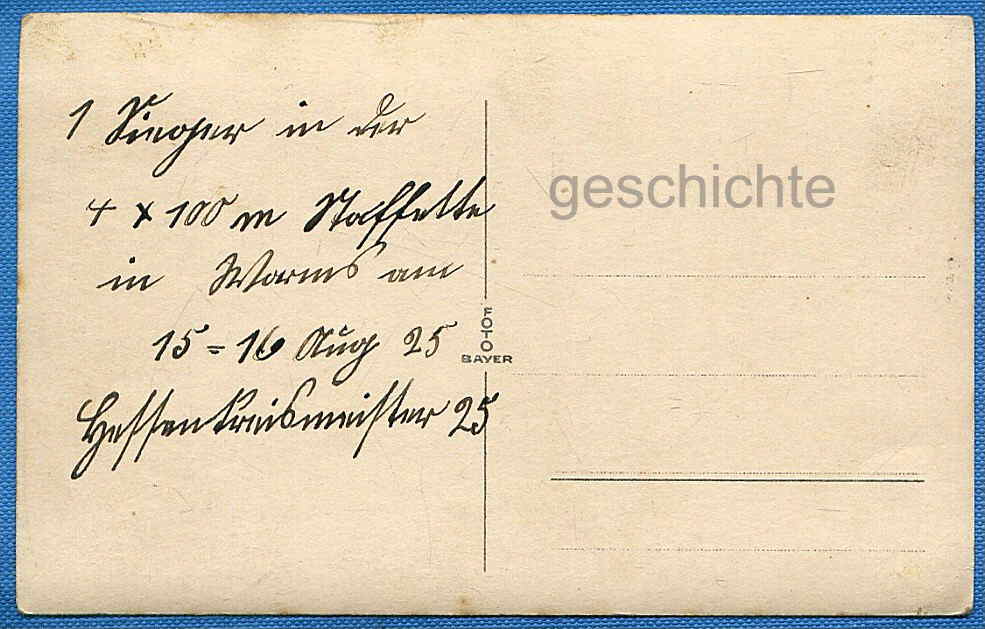 1 Sieger in der
4 x 100 m Staffette
in Worms am
15 = 16 Aug 25
Hessenkreismeister 25
FOTO
BAYER
geschichte